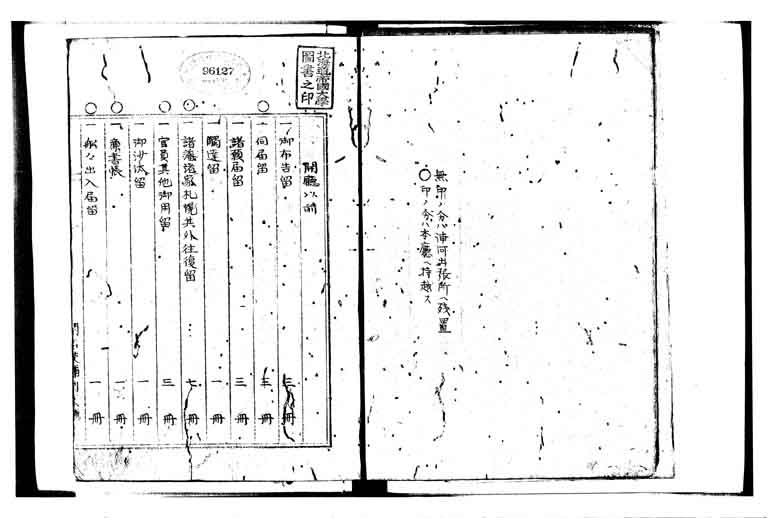 無印ノ分ハ浦河出張所ヘ残置
〇印ノ分ハ本廳ヘ持越ス
北海道帝國大學
圖書之印
96127
開廳以前
一 御布告留 三冊
〇一 伺届留 三冊
一 諸願届留 三冊
一 觸達留 一冊
〇一 諸藩諸家札幌其外往復留 七冊
〇一 官員其他御用留 三冊
一 御沙汰留 一冊
〇一 廉書帳 一冊
〇一 船々出入届留 一冊